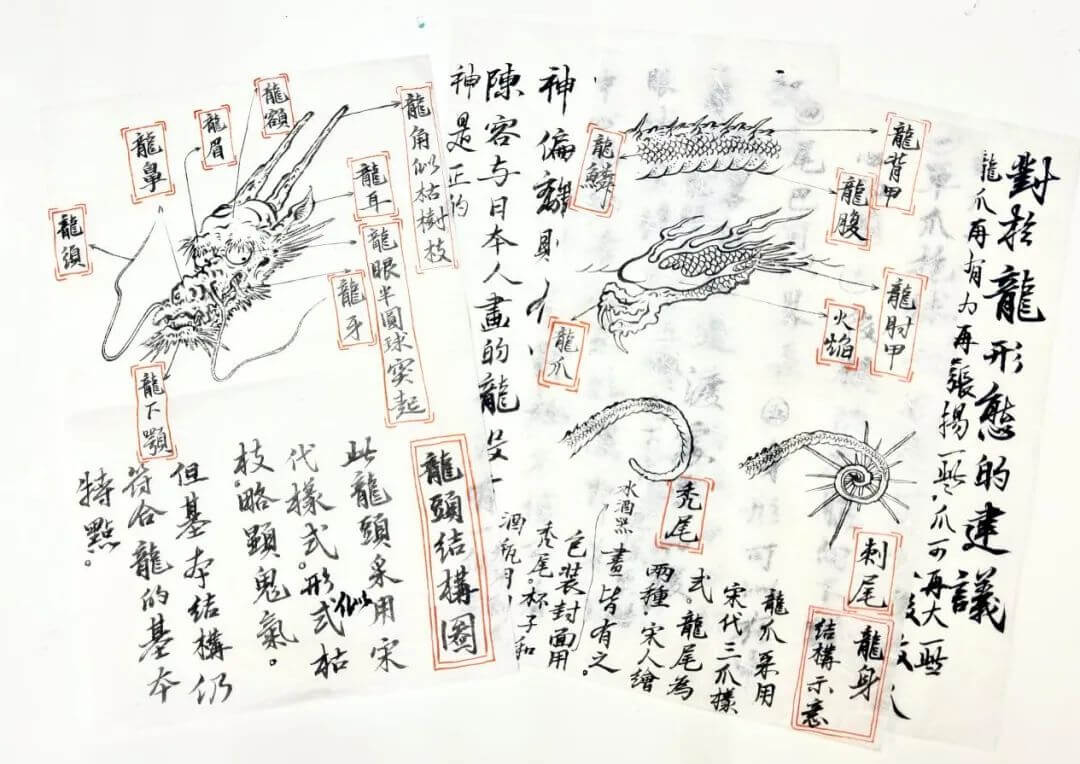 龍額
龍眉
龍鼻
龍須
龍角似枯樹枝
龍耳
龍眼半圓球突起
龍牙
龍下顎
龍頭結構圖
此龍頭采用宋
代樣式。形式似枯
枝。略顯鬼氣。
但基本結構仍
符合龍的基本
特點。
神偏離則
陳容与日本人畫的龍
神是正的
龍鱗
龍背甲
龍腹
龍肘甲
火焰
龍爪
禿尾
刺尾
龍身
結構示意
龍爪采用
宋代三爪樣
式。龍尾為
兩種宋人繪
畫皆有之。
冰酒器
包裝封面用
禿尾。杯子和
酒瓶用
對於龍形態的建議
龍爪再有力再張揚一些，爪可再大一些